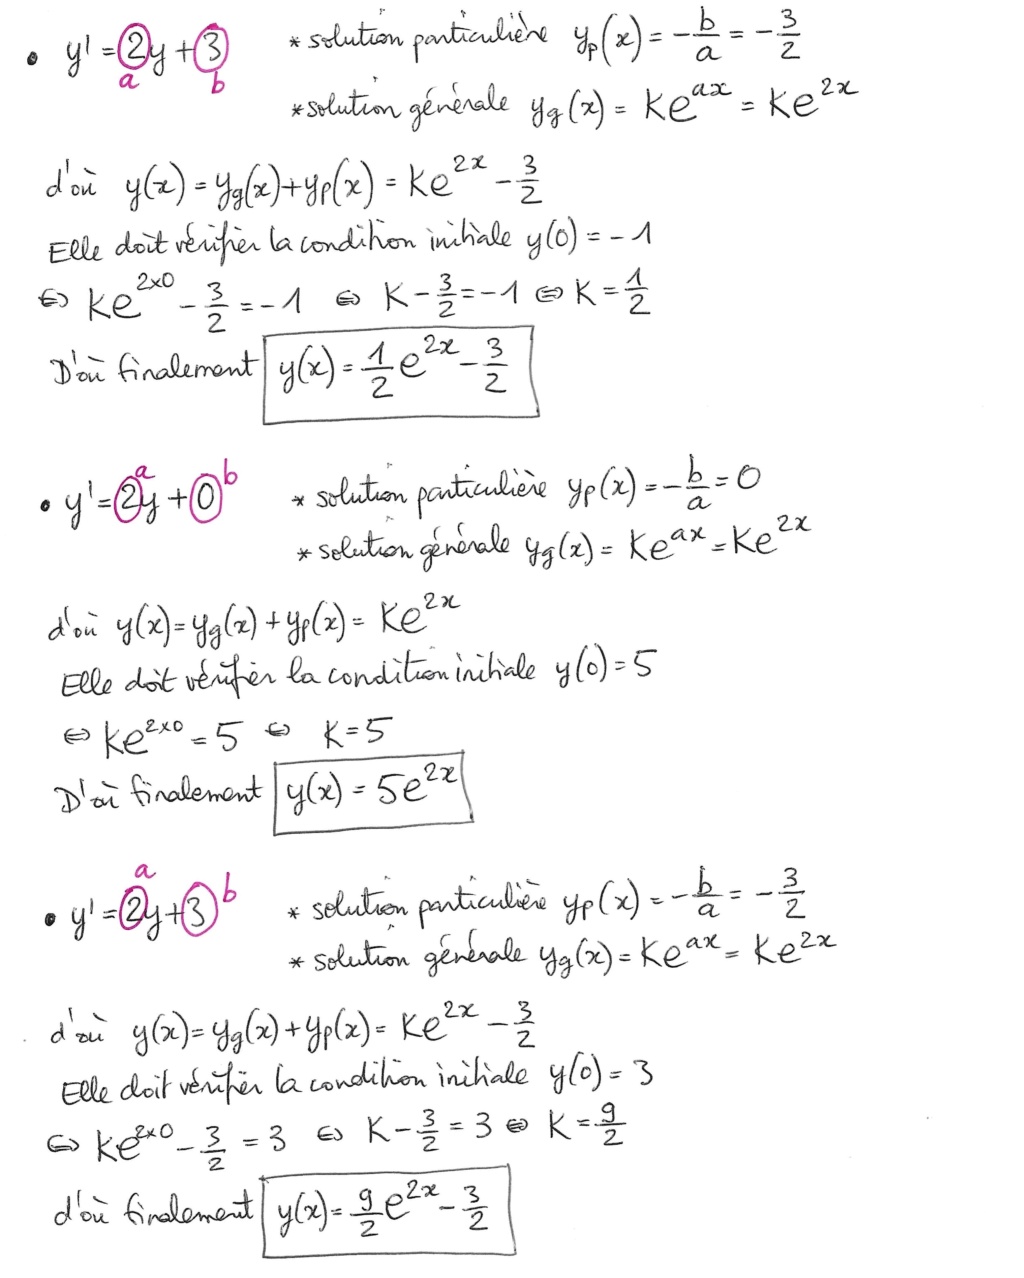 • y' = 2y + 3 * solution particulière yp(x) = -b/a = -3/2
a b
* solution générale yg(x) = Ke^{ax} = Ke^{2x}
d'où y(x) = yg(x) + yp(x) = Ke^{2x} - 3/2
Elle doit vérifier la condition initiale y(0) = -1
⇔ Ke^{2×0} - 3/2 = -1 ⇔ K - 3/2 = -1 ⇔ K = 1/2
D'où finalement y(x) = 1/2 e^{2x} - 3/2
a b
• y' = 2y + 0 * solution particulière yp(x) = -b/a = 0
* solution générale yg(x) = Ke^{ax} = Ke^{2x}
d'où y(x) = yg(x) + yp(x) = Ke^{2x}
Elle doit vérifier la condition initiale y(0) = 5
⇔ Ke^{2×0} = 5 ⇔ K = 5
D'où finalement y(x) = 5e^{2x}
a b
• y' = 2y + 3 * solution particulière yp(x) = -b/a = -3/2
* solution générale yg(x) = Ke^{ax} = Ke^{2x}
d'où y(x) = yg(x) + yp(x) = Ke^{2x} - 3/2
Elle doit vérifier la condition initiale y(0) = 3
⇔ Ke^{2×0} - 3/2 = 3 ⇔ K - 3/2 = 3 ⇔ K = 9/2
d'où finalement y(x) = 9/2 e^{2x} - 3/2